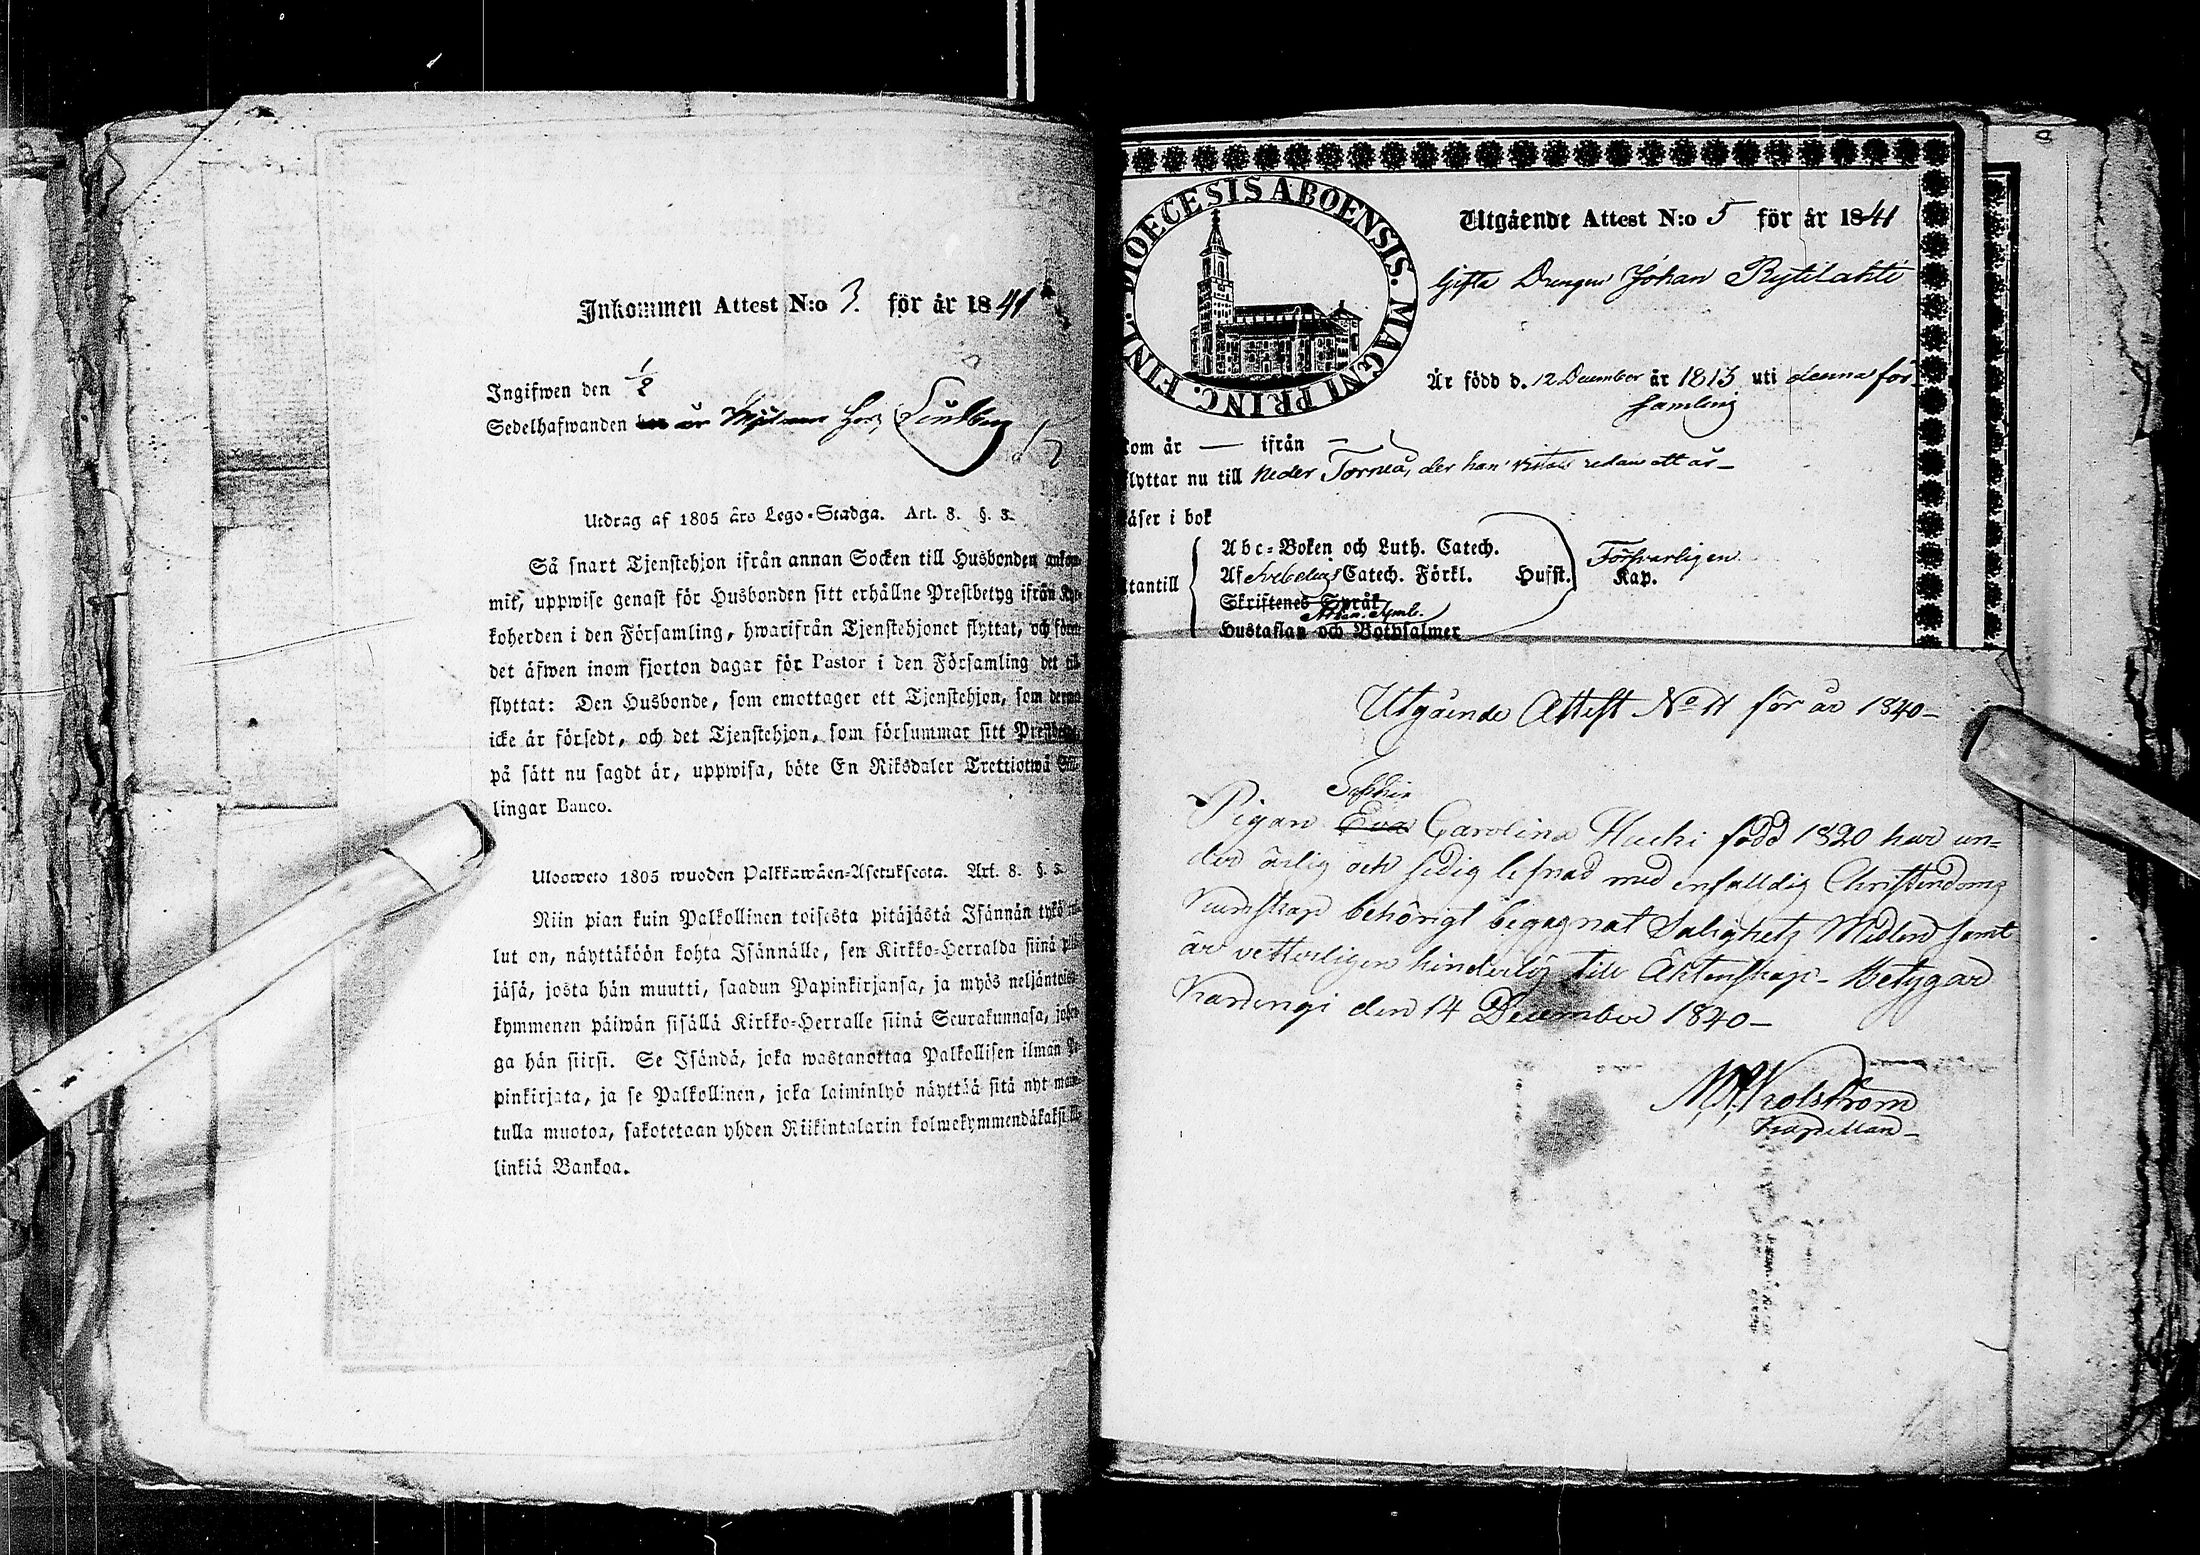 Inkommen Attest N:o 3. för år 1841
Ingifwen den 1/2
Sedelhafwanden
Utdrag af 1805 års Lego-Stadga. Art. 8. §. 3.
Så snart Tjenstehjon ifrån annan Socken till Husbonden ankom-
mit, uppwise genast för Husbonden sitt erhållne Prestbetyg ifrån Kyr-
koherden i den Församling, hwarifrån Tjenstehjonet flyttat, och
det äfwen inom fjorton dagar för Pastor i den Församling det till
flyttat: Den Husbonde, som emottager ett Tjenstehjon, som dermed
icke är försedt, och det Tjenstehjon, som försummar sitt Prestbetyg,
på sätt nu sagdt är, uppwisa, böte En Riksdaler Trettiotwå Skil-
lingar Banco.
Ulosweto 1805 wuoden Palkkawäen-Asetuksesta. Art. 8. §. 3.
Niin pian kuin Palkollinen toisesta pitäjästä Isännän tykö tul-
lut on, näyttäköön kohta Isännälle, sen Kirkko-Herralda siinä pitä-
jäsä, josta hän muutti, saadun Papinkirjansa, ja myös neljäntoista-
kymmenen päiwän sisällä Kirkko-Herralle siinä Seurakunnasa, johon-
ga hän siirsi. Se Isändä, joka wastanottaa Palkollisen ilman Pa-
pinkirjata, ja se Palkollinen, joka laiminlyö näyttää sitä nyt mainit-
tulla muotoa, sakotetaan yhden Riikintalarin kolmekymmendäkaksi Kil-
linkiä Bankoa.
DIOECESIS ABOENSIS. MAGNI PRINC. FINL.
Utgående Attest N:o 5 för år 1841
Gifta Drengen Johan Rytilahti
Är född d. 12 December år 1813 uti denna för-
samling
kom år — ifrån —
flyttar nu till Neder Torneå, der han vistats redan ett år —
läser i bok
utantill
Abc-Boken och Luth. Catech.
Af Svebelius Catech. Förkl. Hufst. Kap.
Försvarligen
Skriftenes Språk
Athan. Symb.
Hustaflan och Botpsalmer
Utgående Attest No 11 för år 1840 —
Sophia
Pigan Eva Carolina Huchi född 1820 har un-
der ärlig och sedig lefnad med enfalldig Christendoms
Kundskap behörigt begagnat Salighetz Medlen samt
är vetterligen hinderlös till Äktenskap — Betygar
Karungi den 14 December 1840 —
Kapellan —